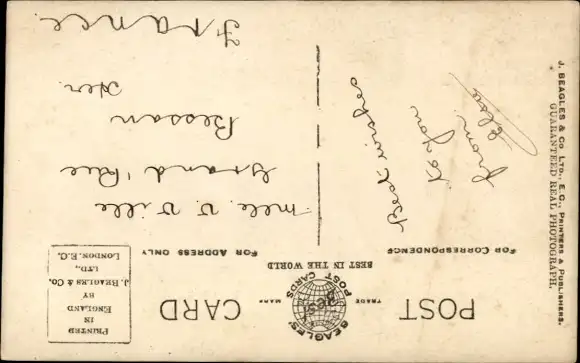 POST CARD
TRADE MARK
BEAGLES' POST CARDS
BEST
BEST IN THE WORLD
PRINTED
IN
ENGLAND
BY
J. BEAGLES & CO.
LTD.,
LONDON. E.C.
FOR CORRESPONDENCE
FOR ADDRESS ONLY
Best wishes
to you
from
Elsa
Mlle. V. Ville
Grand'Rue
Bessan
Her.
France
J. BEAGLES & CO LTD., E. C., PRINTERS & PUBLISHERS.
GUARANTEED REAL PHOTOGRAPH.